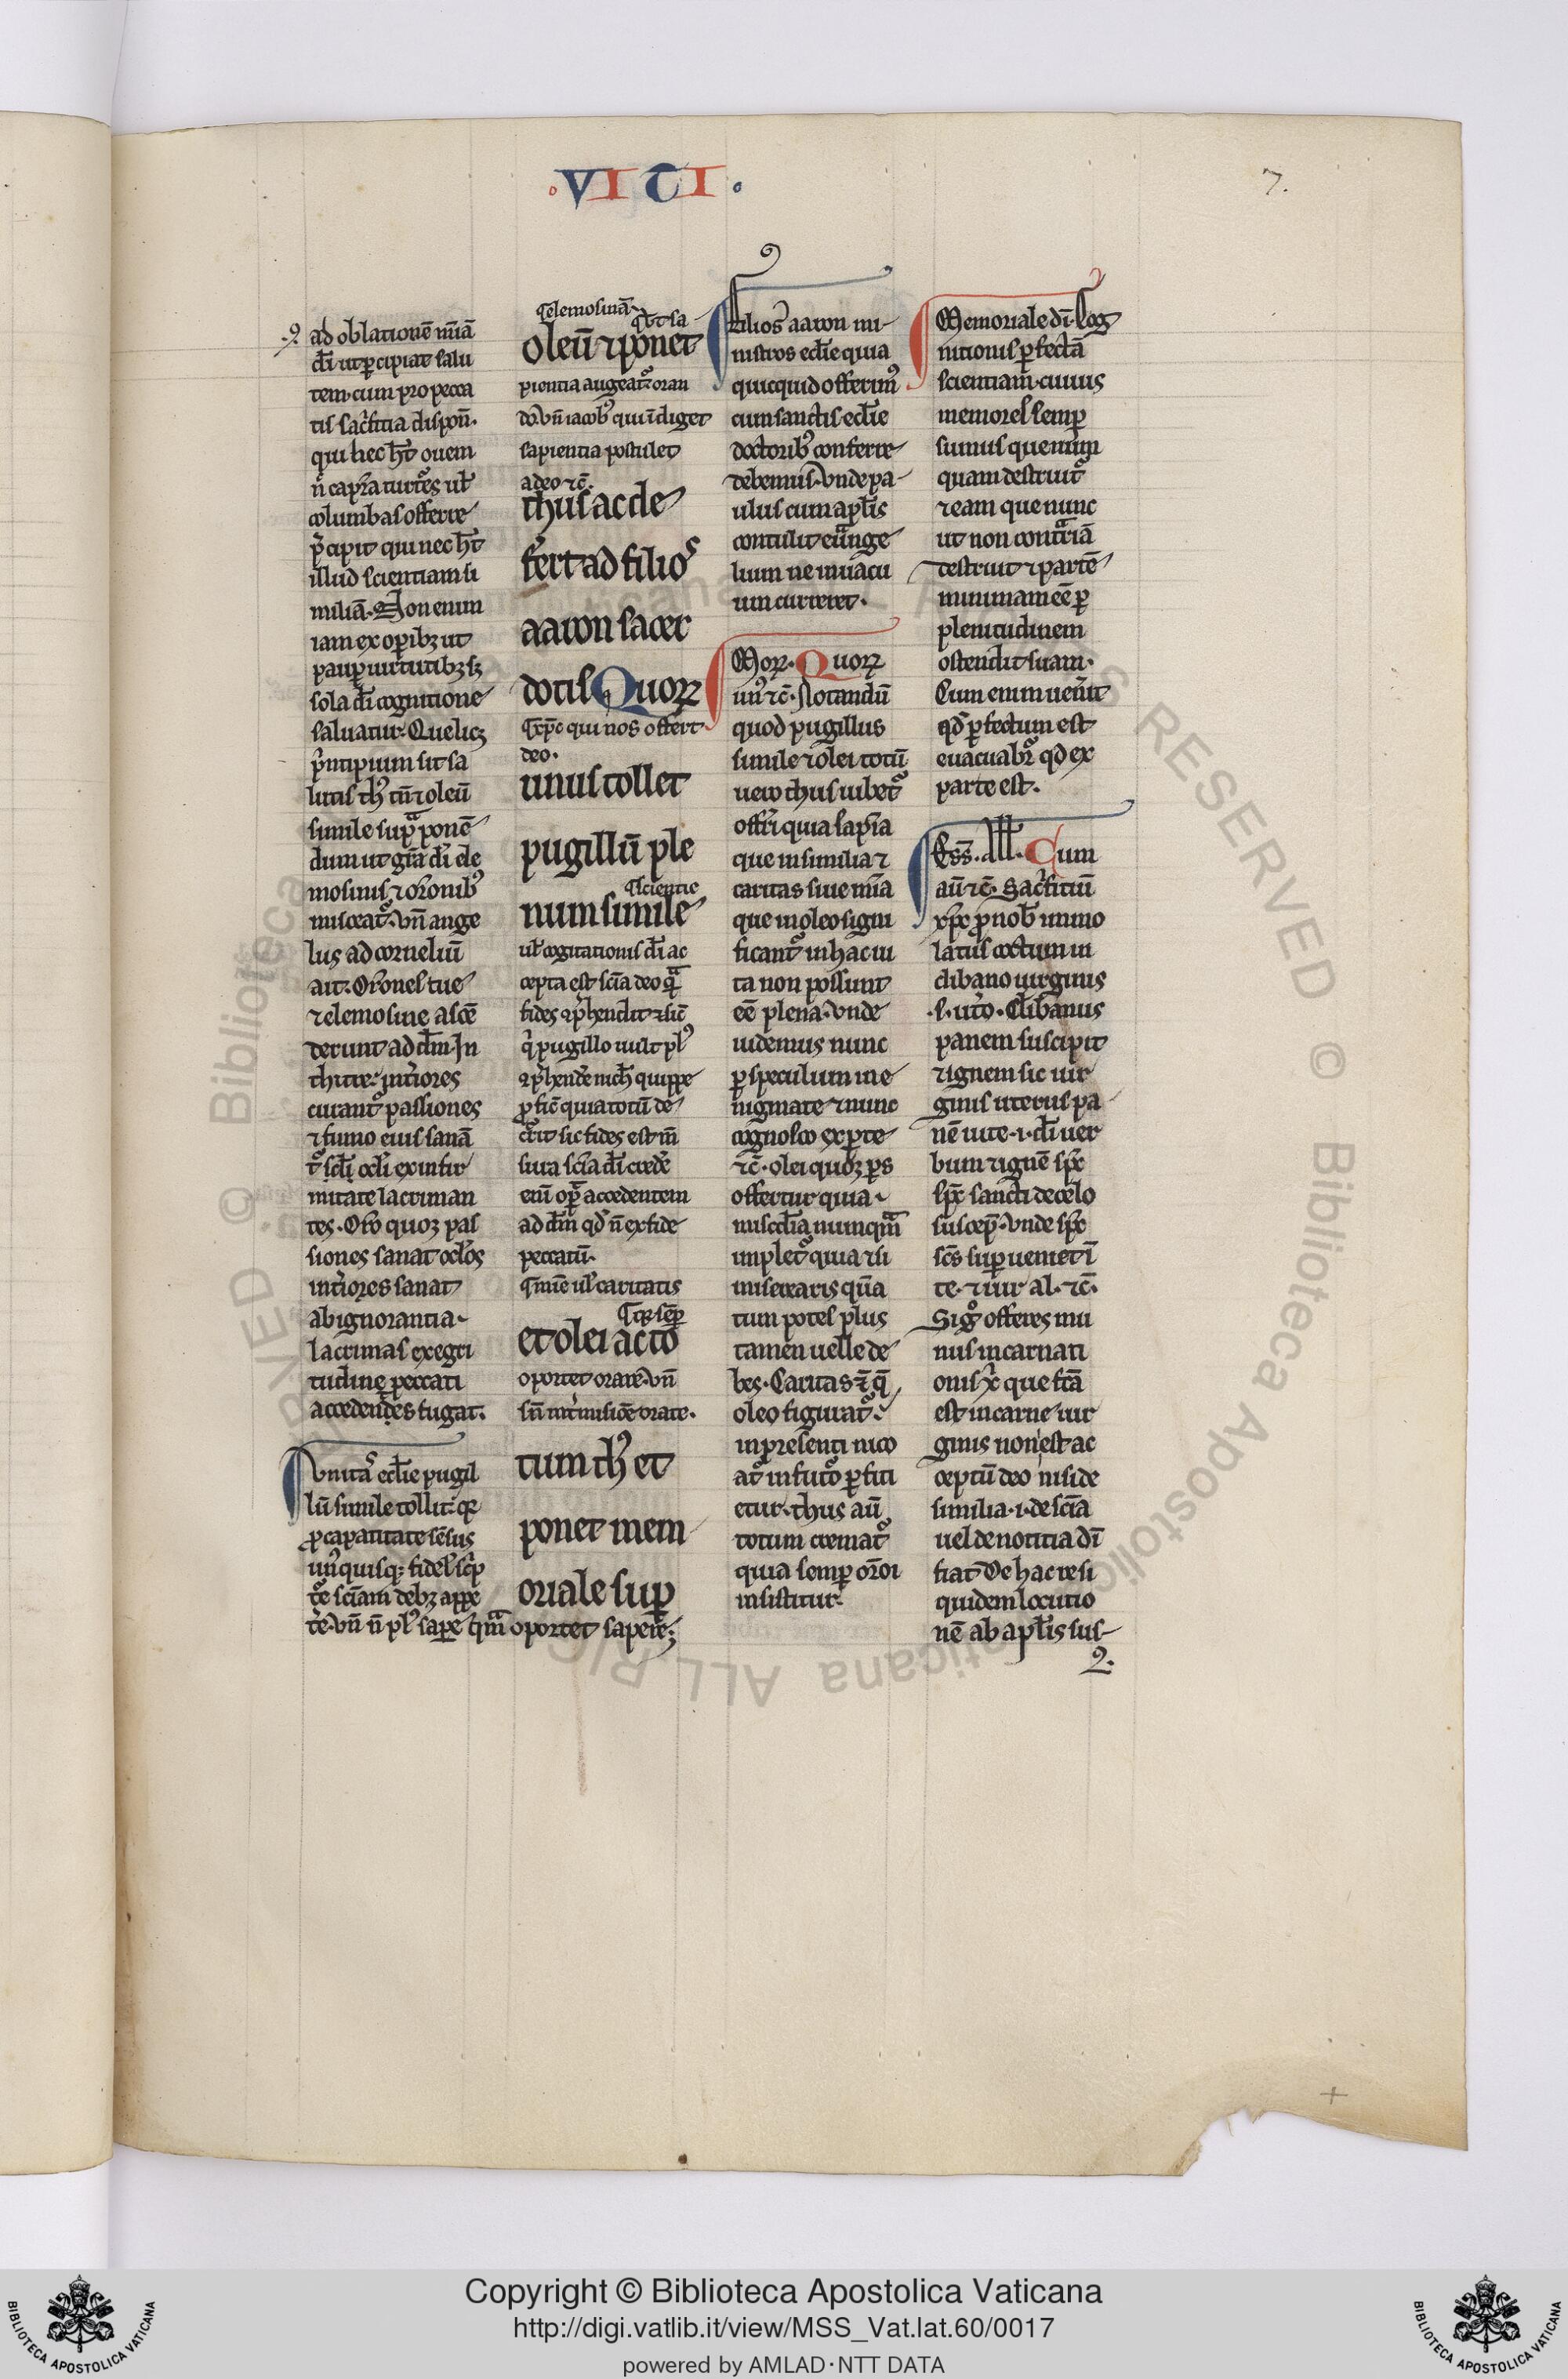 ·VI TI·
7.
·9· ad oblationē mīā
di̅ ut p̲cipiat salu
tem. cum pro pecca
tis sac̓fitia dispon̄.
qui nec h̄t ouem
n̄ cap̓ra turtes ul̓
columbas offerre
p̓cipit qui nec h̄t
illud scientiam si
milīa. Non enim
iam ex op̲ibꝫ ut
paup̲ uirtutibꝫ sꝫ
sola di̅ cognitione
saluatur. Que licꝫ
p̓ncipium sit sa
lutis th᾽ tn̄ ⁊ oleū
simile sup̲ ponē
dum ut gr̄a di̅ ele
mosinis ⁊ or̄onibꝰ
misceat᷑. vn̄ ange
lus ad corneliū
ait. Or̄ones tue
⁊ elemosine ascē
derunt ad dm̄. In
thure int̓iores
curant᷑ passiones
⁊ fumo eius sanā
t᷑ sc̄di ocl̓i ex infir
mitate lacriman
tes. Or̄o quoꝫ pas
siones sanat ocl̓os
int̓iores sanat
ab ignorantia
lacrimas ex egri
tudine peccati
accedentes fugat.
Vnitas̓ eccl̄ie pugil
lū simile tollit. qꝛ
ꝓ capacitate sēsus
un᾽quisqꝫ fidel̓ sc̓p
te sciam̄ debꝫ appe
te. vn̄ n̄ pl᾽ sape̲ qm̄ oportet sapere;
¶elemosinā ¶Vt sa
oleū ⁊ ponet
pientia augeat᷑ oran
do. vn̄ iacobꝰ qui īdiget
sapientia postulet
a deo ⁊c̄.
thus ac de
fert ad filios
aaron sacer
dotis Quoꝝ
¶xp̄c qui nos offert
deo.
unus tollet
pugillū ple
¶scientie
num simile
ul̓ cogitationis di̅ ac
cepta est scīa deo qᷓ
fides ꝯp̓hendit ⁊ sic̄
q̓ pugillo uult pl᾽
ꝯp̓hendē nich̄ quippe
ꝓfic̄ quia totū de
cīt sic fides est in̄
sura scīa di̅ credē
enī op̲ accedentem
ad dm̄ qd̓ n̄ ex fide
peccatū.
¶mīe ul̓ caritatis
¶qꝛ semp̲
et olei ac to
oportet orare. vn̄
sn̄ int̓missiōe orate.
tum th᾽ et
ponet mem
oriale sup̲
Filios aaron mi
nistros eccl̄ie quia
quicquid offerim᾽
cum sanctis eccl̄ie
doctoribꝰ conferre
debemus. vnde pa
ulus cum aplis̄
contulit euāge
lium ne in uacu
um curreret.
Moꝝ. Quoꝝ
un᾽ ⁊c̄. Notandū
quod pugillus
simile ⁊ olei totū
uero thus iubet᷑
offr̓i quia sapīa
que in simila ⁊
caritas siue mīa
que in oleo signi
ficant᷑ in hac ui
ta non possunt
eē plena. vnde
uidemus nunc
p̲ speculum in e
nigmate ⁊ nunc
cognosco ex p̲te
⁊c̄. olei quoꝫ p̲s
offertur quia
misc̄dia numqm̄
implet᷑ quia ⁊ si
miserearis qn̄a
tum potes plus
tamen uelle de
bes. Caritas ⁊ q̄
oleo figurat᷑.
in presenti nico
at᷑ in futo᷑ p̲fici
etur. thus aū
totum cremat᷑
quia semp̲ or̄oi
insistitur.
Memoriale di̅. Cog
nitionis p̲fectā
scientiam. cuius
memores semp̲
sumus que nūm
quam destruit᷑
⁊ eam que nunc
ut non contrīā
destruit ⁊ partē
minimam eē p̲
plenitudinem
ostendit suam.
Cum enim uen̓it
qd̓ p̲fectum est
euacuabr̄ qd̓ ex
parte est.
Ess. III. Cum
aū ⁊c̄. Sac̓fitiū
xp̄c ꝓ nob̄ immo
latus coctum in
clibano uirginis
.s. ut̓o. Clibanus
panem suscipit
⁊ ignem sic uir
ginis uterus pa
nē uite .i. di̅ uer
bum ⁊ ignē spc̄
spc̄ sancti de celo
suscep̄. vnde spc̄
scs̄ sup̲ueniet ī
te. ⁊ uir al. ⁊c̄.
Sig᷑ offeres mu
nus incarnati
onis xp̄i que fcā
est in carne uir
ginis non est ac
ceptū deo nisi de
simila .i. de scīa
uel de notitia di̅
fiat De hac resi
quidem locutio
nē ab aplis̄ sus
9.
+
Copyright © Biblioteca Apostolica Vaticana
http://digi.vatlib.it/view/MSS_Vat.lat.60/0017
powered by AMLAD·NTT DATA
BIBLIOTECA APOSTOLICA VATICANA
BIBLIOTECA APOSTOLICA VATICANA